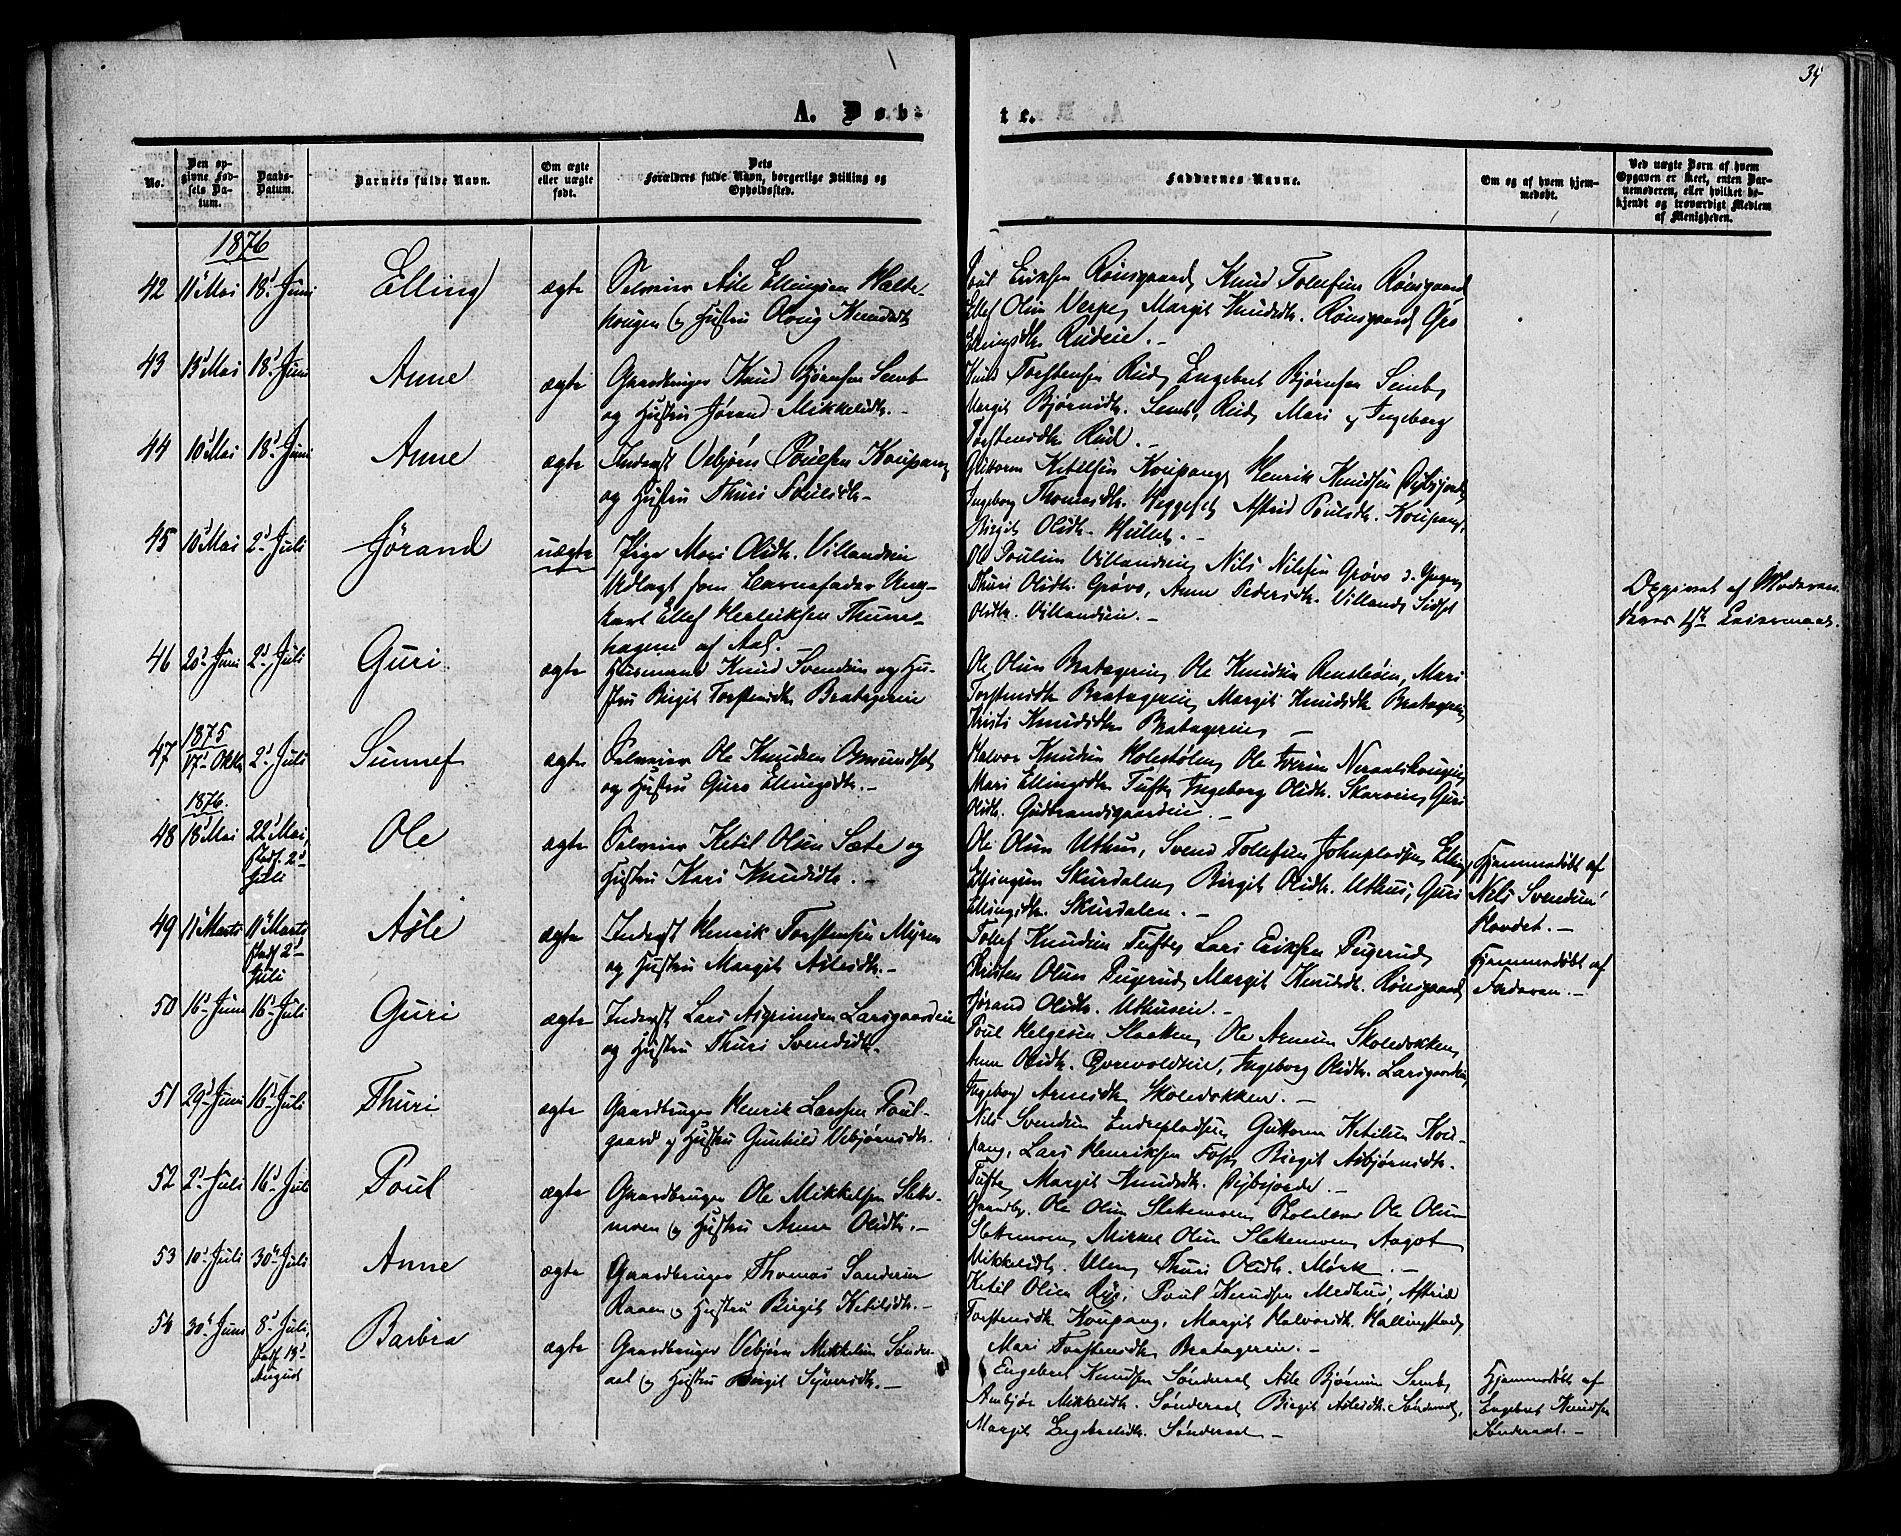 35
A. Døb-
te.
No.
Den op-
givne Fød-
sels Da-
tum.
Daabs-
Datum.
Barnets fulde Navn.
Om ægte
eller uægte
født.
Dets
Forældres fulde Navn, borgerlige Stilling og
Opholdssted.
Faddernes Navne.
Om og af hvem hjem-
medøbt.
Ved uægte Børn af hvem
Opgaven er skeet, enten Bar-
nemoderen, eller hvilket be-
kjendt og troværdigt Medlem
af Menigheden.
1876
42 11te Mai 18de Juni Elling ægte Selveier Asle Ellingsen Halde-
haugen og Hustru Knudsdtr
Poul Eriksen Rønsgaard, Knud Tollefsen Rønsgaard,
Ellef Olsen Verpe, Margit Knudsdtr. Rønsgaard, Gro
Ellingsdtr. Rudeie. -
43 13de Mai 18de Juni Anne ægte Gaardbruger Knud Bjørnsen Semb
og Hustru Jørand Mikkelsdtr. -
Knud Torstensen Rud, Engebret Bjørnsen Semb,
Margit Bjørnsdtr. Semb, Rud, Mari og Ingeborg
Torstensdtr Rud. -
44 10de Mai 18de Juni Anne ægte Inderst Vebjørn Poulsen Koupang
og Hustru Thuri Poulsdtr -
Guttorm Ketilsen Koupang, Henrik Knudsen
Ingeborg Thomasdtr. Astrid Poulsdtr. Koupang,
Birgit Olsdtr. -
45 10de Mai 2den Juli Jørand uægte Pige Mari Olsdtr. Villandseie
Udlagt som Barnefader Ung-
karl Ellef Henriksen Thune-
hagen af Aal. -
Ole Poulsen Villandseie, Nils Nilsen Grøvo
Thuri Olsdtr. Grøvo, Anne Pedersdtr. Villand, Sidsel
Olsdtr. Villandseie. -
Opgivet af Moderen.
Hans 1ste Leiermaal.
46 20de Juni 2den Juli Guri ægte Husmand Knud Svendsen og Hu-
stru Birgit Torstensdtr Bratagereie
Ole Olsen Bratagereie, Ole Knudsen Mari
Torstensdtr Bratagereie, Margit Knudsdtr Bratagereie
Kristi Knudsdtr Bratagereie, -
1875
47 17de Oktbr 2den Juli Sunnef ægte Selveier Ole Knudsen
og Hustru Guro Ellingsdtr. -
Halvor Knudsen Ole Iversen
Mari Ellingsdtr Tufte, Ingeborg Olsdtr. Guri
Olsdtr. Gudbrandsgaardeie. -
1876.
48 18de Mai 22de Mai,
stadf. 2den
Juli
Ole ægte Selveier Ketil Olsen Sæte og
Hustru Kari Knudsdtr. -
Ole Olsen Uthus, Svend Tollefsen Johnpladsen, Elling
Ellingsen Skurdalen, Birgit Olsdtr. Uthus, Guri
Ellingsdtr. Skurdalen. -
Hjemmedøbt af
Nils Svendsen
Hovdet. -
49 11te Marts 11te Marts
stadf 2den
Juli
Asle ægte Inderst Henrik Torstensen Myren
og Hustru Margit Aslesdtr. -
Tollef Knudsen Tufte, Lars Eriksen Pegerud,
Kristen Olsen Pegerud, Margit Knudsdtr. Rønsgaard,
Jørand Olsdtr. Uthuseie. -
Hjemmedøbt af
Faderen. -
50 16de Juni 16de Juli Guri ægte Inderst Lars Asgrimsen Larsgaardeie
og Hustru Thuri Svendsdtr.
Poul Helgesen Ole Arnesen Skoledokken,
Anne Olsdtr. Ingeborg Olsdtr. Larsgaardeie,
Ingeborg Arnesdtr Skoledokken. -
51 29de Juni 16de Juli Thuri ægte Gaardbruger Henrik Larssen Poul-
gaard og Hustru Gunhild Vebjørnsdtr.
Nils Svendsen Endrepladsen, Guttorm Ketilsen Kou-
pang, Lars Henriksen Foss, Birgit Asbjørnsdtr.
Tufte, Margit Knudsdtr. -
52 2den Juli 16de Juli Poul ægte Gaardbruger Ole Mikkelsen Sleke-
moen og Hustru Anne Olsdtr. -
Gaardbr. Ole Olsen Slekemoen, Ole Olsen
Slekemoen, Mikkel Olsen Slekemoen, Aagot
Mikkelsdtr. Thuri Olsdtr. Mørk. -
53 10de Juli 30te Juli Anne ægte Gaardbruger Thomas Sandersen
Raaen og Hustru Birgit Ketilsdtr. -
Ketil Olsen Poul Knudsen Medhus, Astrid
Torstensdtr Koupang, Margit Halvorsdtr. Hallingstad,
Mari Torstensdtr Bratagereie. -
54 30te Juni 8de Juli,
stadf. 13de
August
Barbra ægte Gaardbruger Vebjørn Mikkelsen Sønder-
aal og Hustru Birgit Syversdtr. -
Engebret Knudsen Sønderaal, Asle Bjørnsen Semb,
Ambjør Mikkelsdtr. Sønderaal, Birgit Aslesdtr. Sønderaal,
Margit Engebretsdtr. Sønderaal -
Hjemmedøbt af
Engebret Knudsen
Sønderaal. -